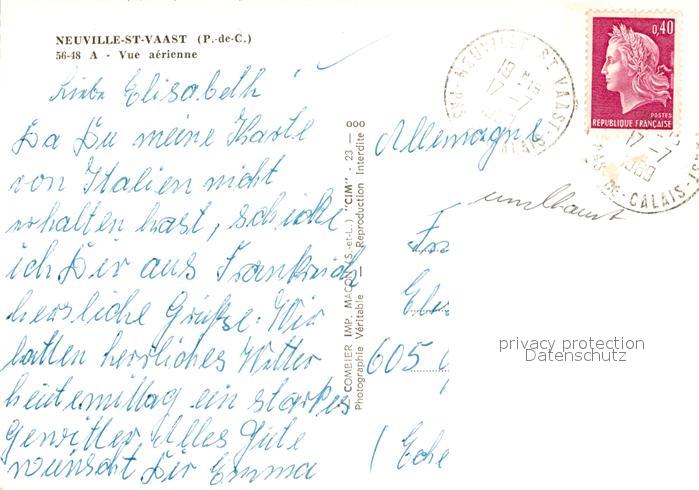 NEUVILLE-ST-VAAST (P.-de-C.)
56-48 A - Vue aérienne
Liebe Elisabeth!
Da Du meine Karte
von Italien nicht
erhalten hast, schicke
ich Dir aus Frankreich
herzliche Grüße. Wir
hatten herrliches Wetter
heute mittag ein starkes
Gewitter. Alles Gute
wünscht Dir Emma
COMBIER IMP. MACON (S.-et-L.) "CIM" - 23 - 000
Photographie Véritable - Reproduction Interdite
NEUVILLE ST VAAST
18 H
17-7
PAS DE CALAIS
0,40
POSTES
REPUBLIQUE FRANÇAISE
17-7
1969
PAS-DE-CALAIS
Allemagne
605
privacy protection
Datenschutz